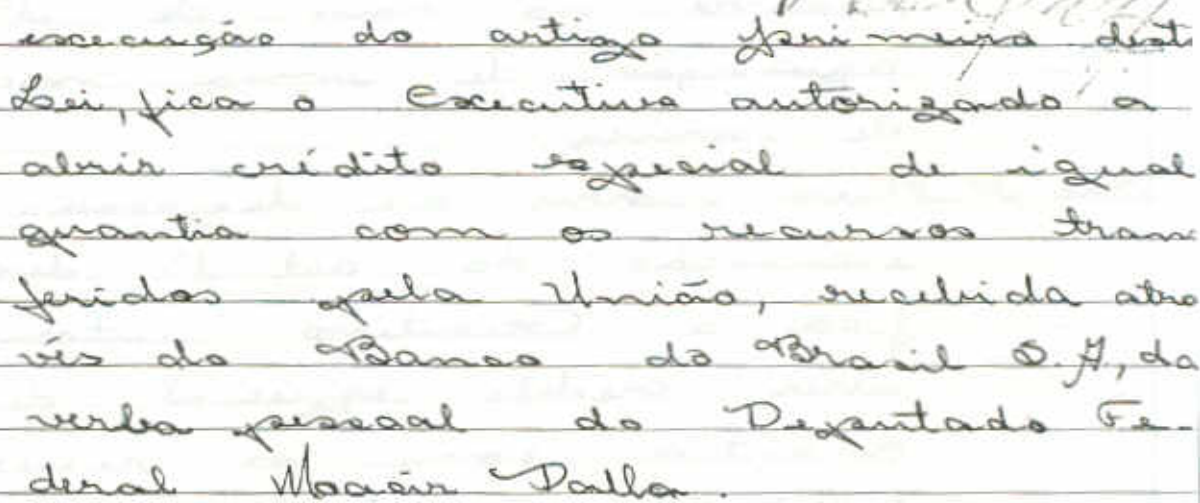 execução do artigo primeiro dest
Lei, fica o Executivo autorizado a
abrir crédito especial de igual
quantia com os recursos tran
feridos pela União, recebida atra
vés do Banco do Brasil S.A, da
verba pessoal do Deputado Fe-
deral Moacir Dalla.